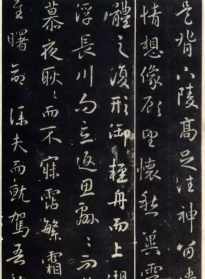 是背下陵高足往神留
情想像顧望懷愁冀靈
體之復形御輕舟而上溯
浮長川而忘返思緜〻而
慕夜耿〻而不寐霑繁霜
至曙命僕夫而就駕吾